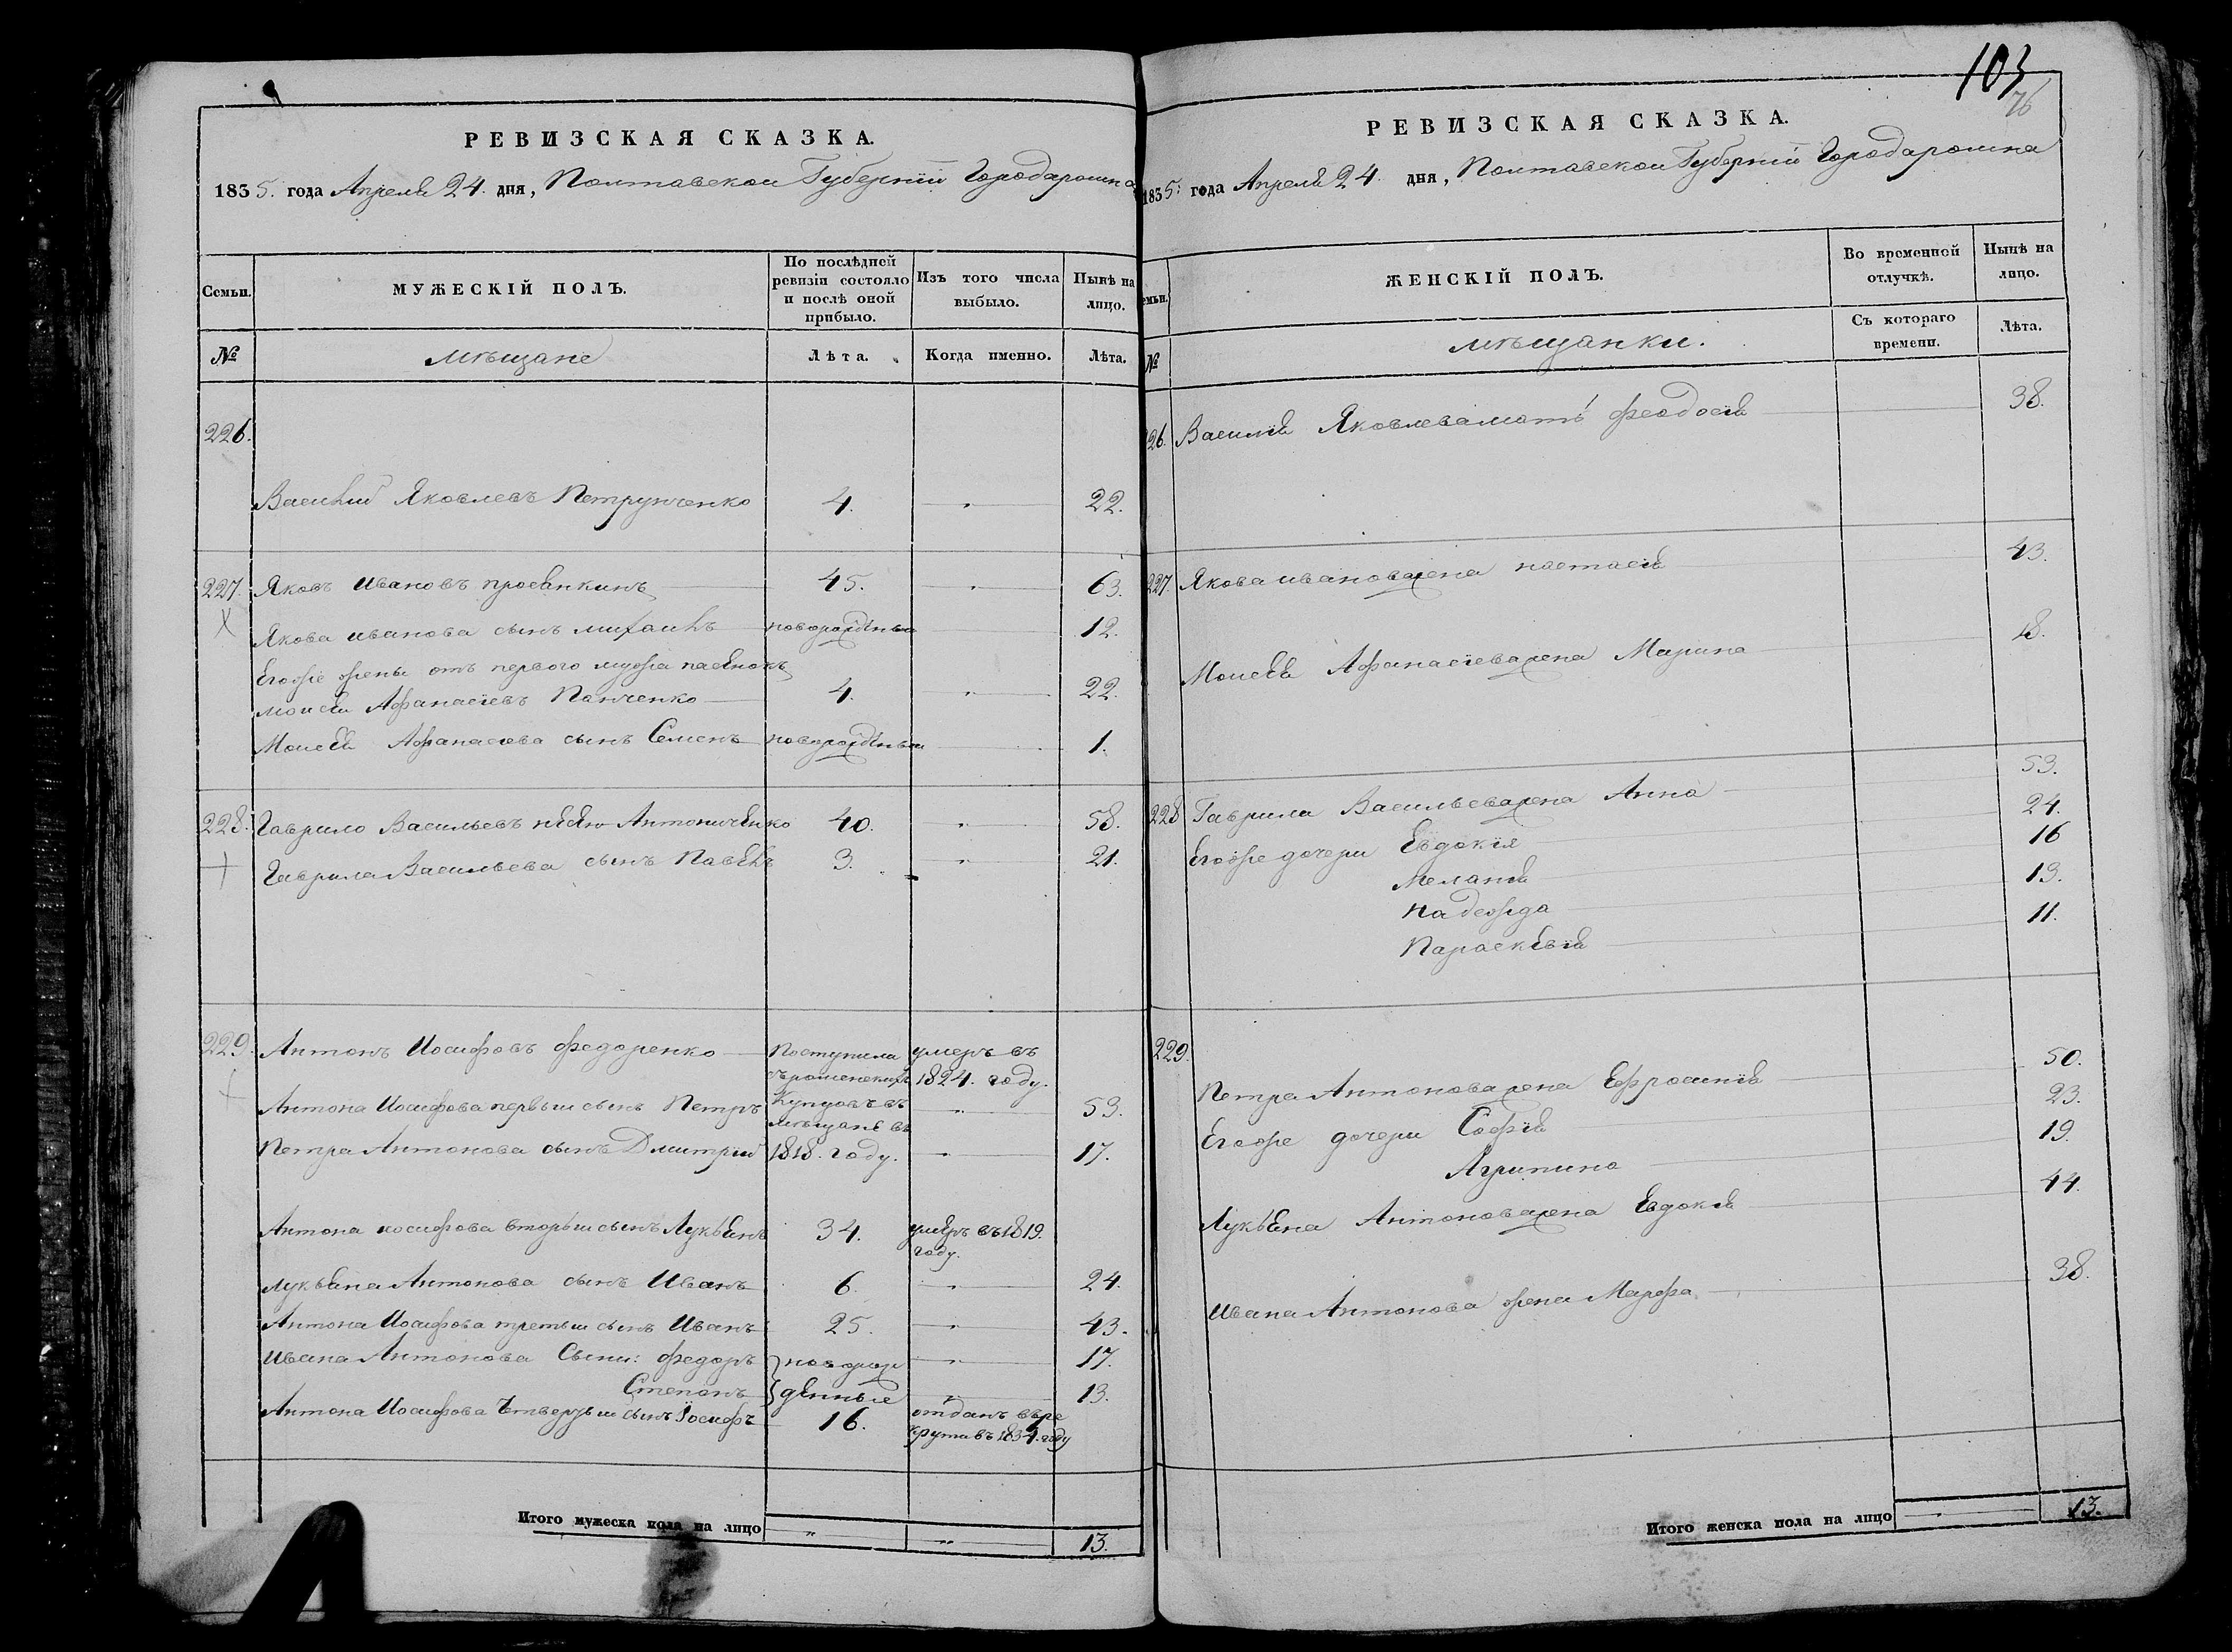 РЕВИЗСКАЯ СКАЗКА.
1835. года Апреля 24. дня, Полтавской Губернїи Города Ромна
Семьи.
МУЖЕСКІЙ ПОЛЪ.
По послѣдней ревизіи состояло и послѣ оной прибыло.
Изъ того числа выбыло.
Нынѣ на лицо.
№
мѣщане
Лѣта.
Когда именно.
Лѣта.
226.
Василий Яковлевъ Петрунченко 4. 22.
227. Яковъ Ивановъ 45. 63.
Якова Иванова сынъ Михаилъ новорожденный 12.
Егоже жены отъ первого мужа пасынокъ
Моисей Афанасїевъ Панченко 4. 22.
Моисея Афанасїева сынъ Семенъ новорожденный 1.
228. Гаврило Васильевъ Антониченко 40. 58.
Гаврила Васильева сынъ Павелъ 3. 21.
229. Антонъ Иосифовъ Федоренко Поступила умеръ въ
съ роменскихъ 1824. году.
Антона Иосифова первый сынъ Петръ Купцовъ въ 53.
мѣщане въ
Петра Антонова сынъ Дмитрий 1818. году. 17.
Антона Иосифова вторый сынъ Лукьянъ 34. умеръ въ 1819.
году.
Лукьяна Антонова сынъ Иванъ 6. 24.
Антона Иосифова третьи сынъ Иванъ 25. 43.
Ивана Антонова Сыны: Федоръ новорож 17.
Степанъ денные 13.
Антона Иосифова Четвертый сынъ Іосифъ 16. отданъ въ ре
крута въ 1834. году
Итого мужеска пола на лицо 13.
103
76
РЕВИЗСКАЯ СКАЗКА.
1835: года Апреля 24. дня, Полтавской Губернїи Города Ромна
Семьи.
ЖЕНСКІЙ ПОЛЪ.
Во временной отлучкѣ.
Нынѣ на лицо.
№
мѣщанки.
Съ котораго времени.
Лѣта.
226. Василїя Яковлева мать Феодосїя 38.
227. Якова Иванова жена Настасїя 43.
Моисея Афанасїева жена Марина 18.
228 Гаврила Васильева жена Анна 53.
Егоже дочери Евдокїя 24.
Меланїя 16
Надежда 13.
Параскевїя 11.
229.
Петра Антонова жена Ефросинїя 50.
Егоже дочери Софїя 23.
Агрипина 19.
Лукьяна Антонова жена Евдокїя 44.
Ивана Антонова жена Марфа 38.
Итого женска пола на лицо 13.